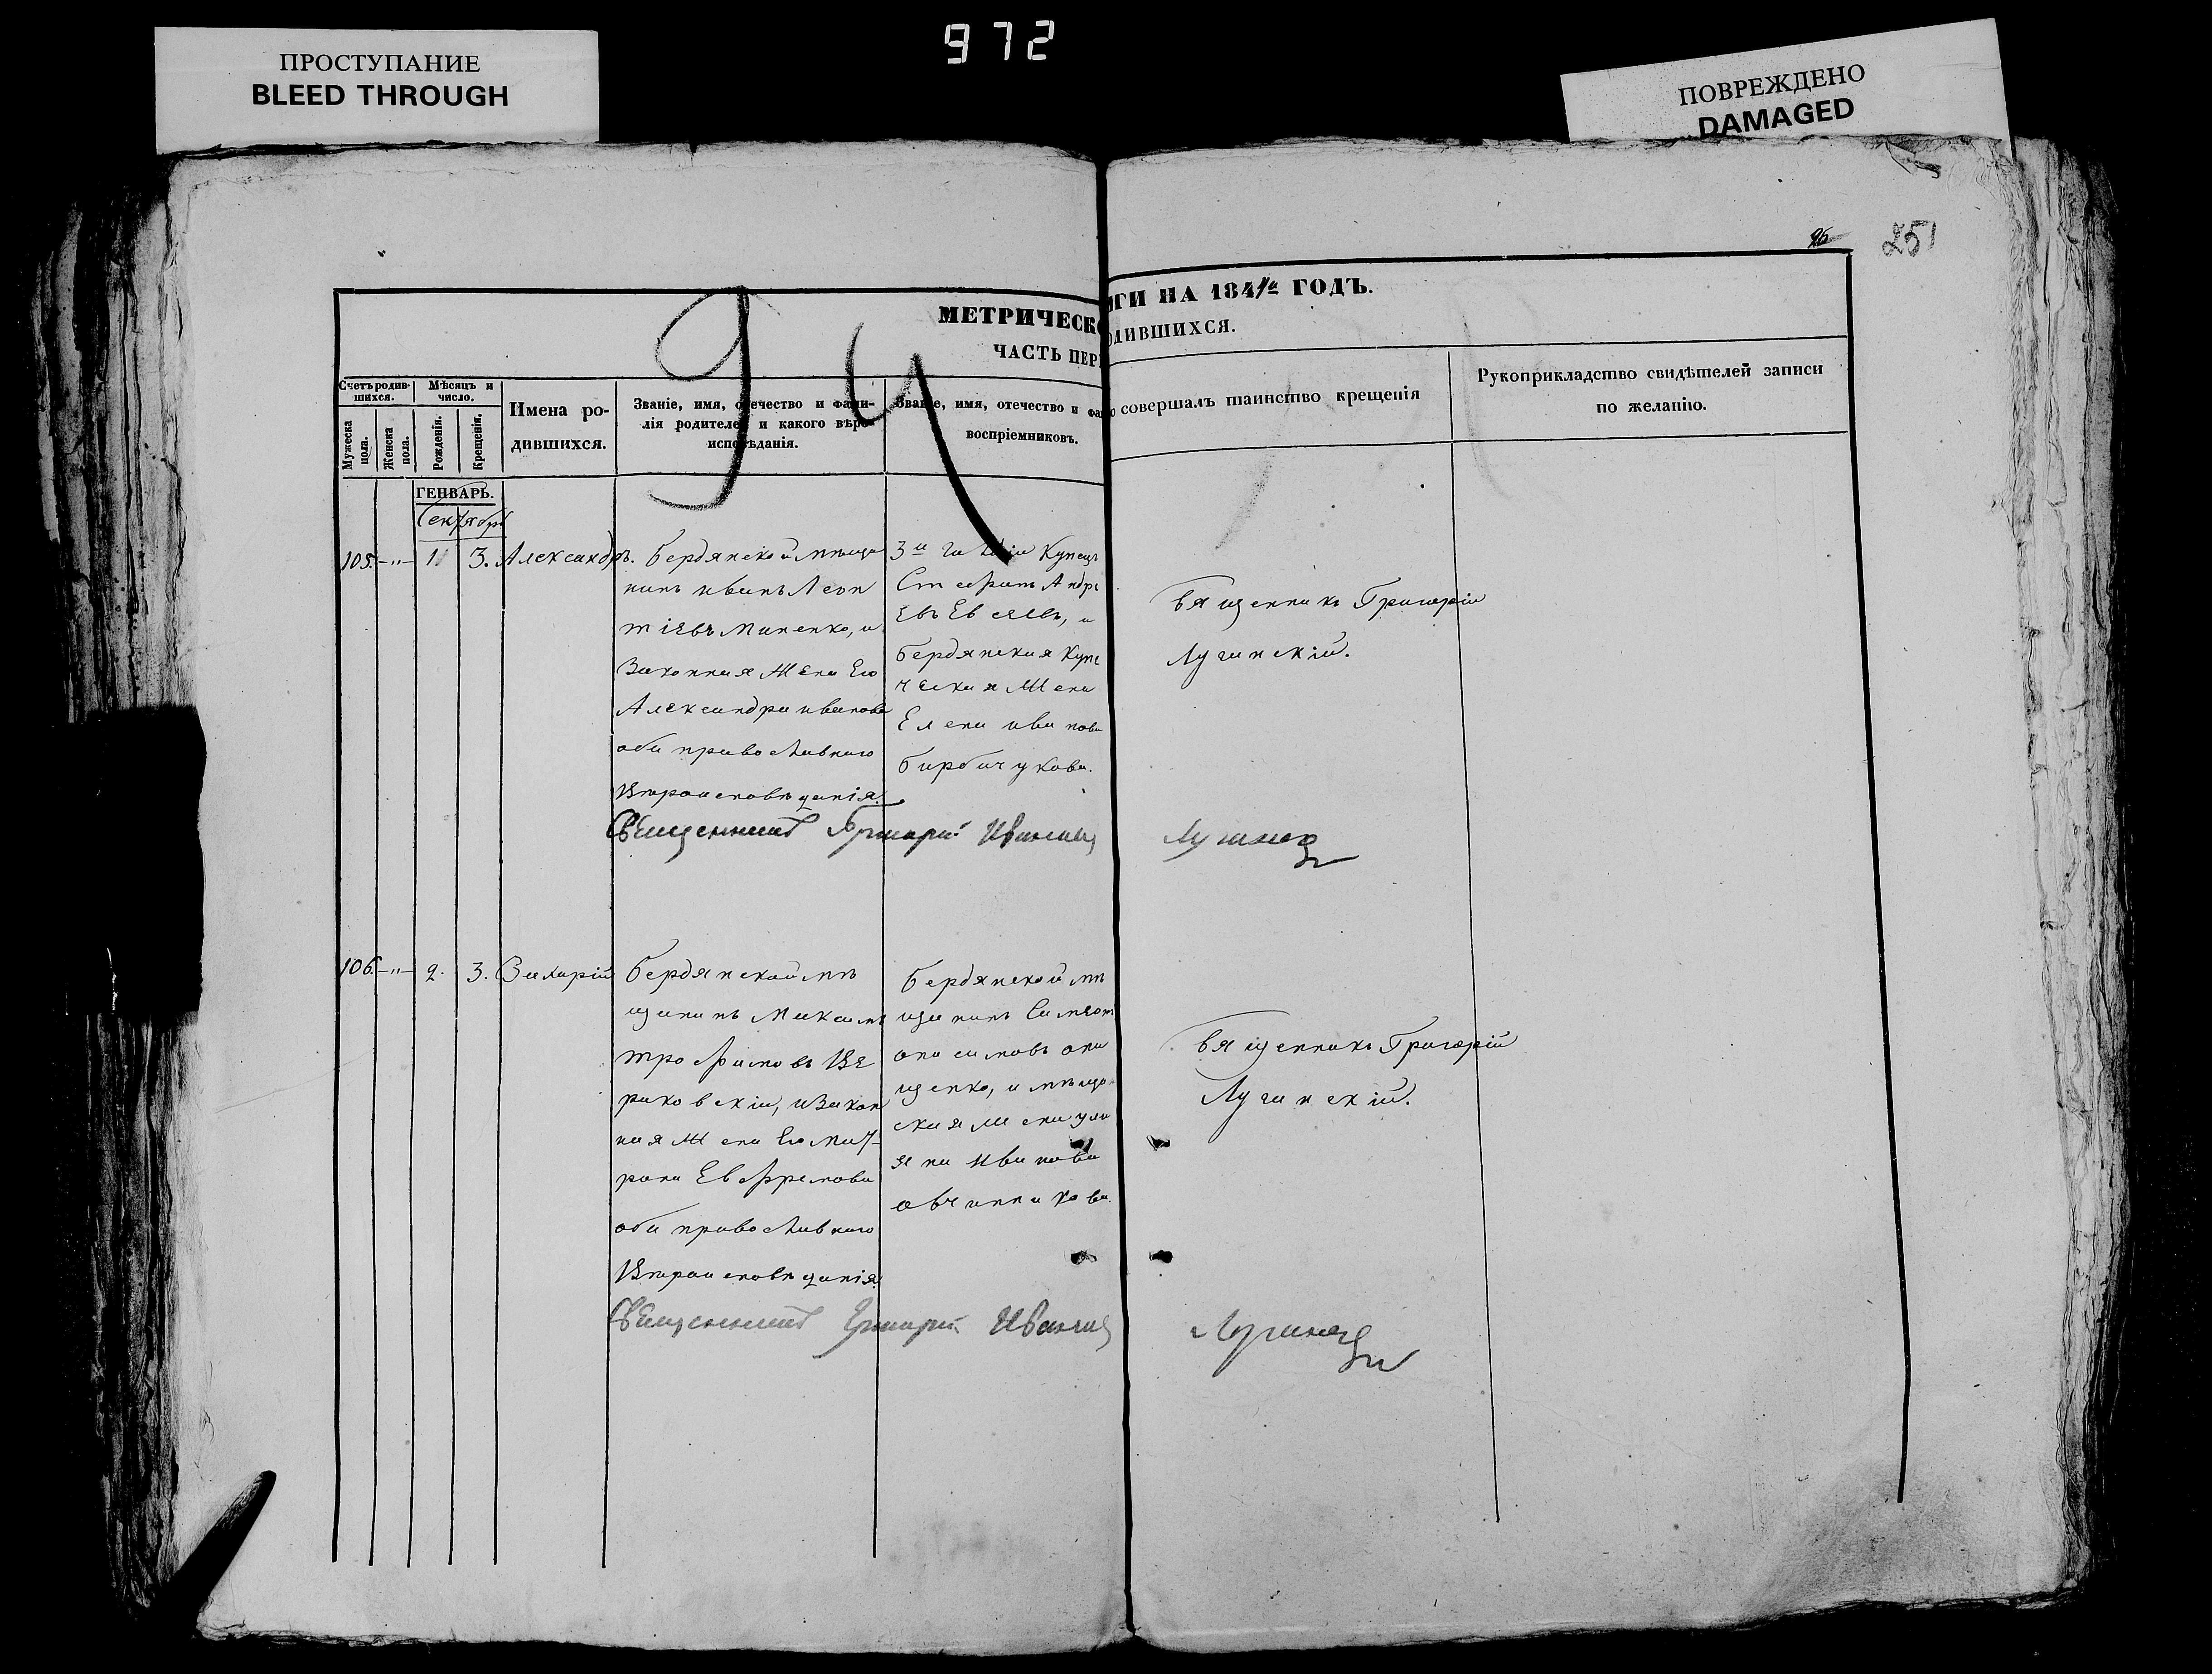 ПРОСТУПАНИЕ
BLEED THROUGH
972
ПОВРЕЖДЕНО
DAMAGED
26
251
МЕТРИЧЕСКО
ГИ НА 1844го ГОДЪ.
ЧАСТЬ ПЕР
ОДИВШИХСЯ.
Счетъ родив-
шихся.
Мужеска
пола.
Женска
пола.
Мѣсяцъ и
число.
Рожденія.
Крещенія.
Имена ро-
дившихся.
Званіе, имя, отечество и фами-
лія родителей и какого вѣро-
исповѣданія.
Званіе, имя, отечество и фа
воспріемниковъ.
совершалъ таинство крещенія
Рукоприкладство свидѣтелей записи
по желанію.
ГЕНВАРЬ.
Сентябрь
105. -"- 1 3. Александръ.
Бердянской мѣща
нинъ иванъ Леон
тіевъ Миненко, и
Законная Жена Его
Александра иванова
оба православнаго
Вѣроисповѣданія.
3й гильдіи Купецъ
Стефанъ Андре
евъ Евсеевъ, и
бердянская Купе
ческая Жена
Елена ивановa
барбачукова.
Священникъ Григорій
Лугинскій.
Священникъ Григорій Иванов Лугинск
106. -"- 2. 3. Захарій
бердянской мѣ
щанинъ Максимъ
трофимовъ Ве
риковскій, и Закон
ная Жена Его мат-
рона Евфремова
оба православнаго
Вѣроисповѣданія.
бердянской мѣ
щанинъ Симеон
онисимовъ они
щенко, и мѣщан
ская жена ули
яна Иванова
овчинникова.
Священникъ Григорій
Лугинскій.
Священникъ Григорій Иванов Лугинск